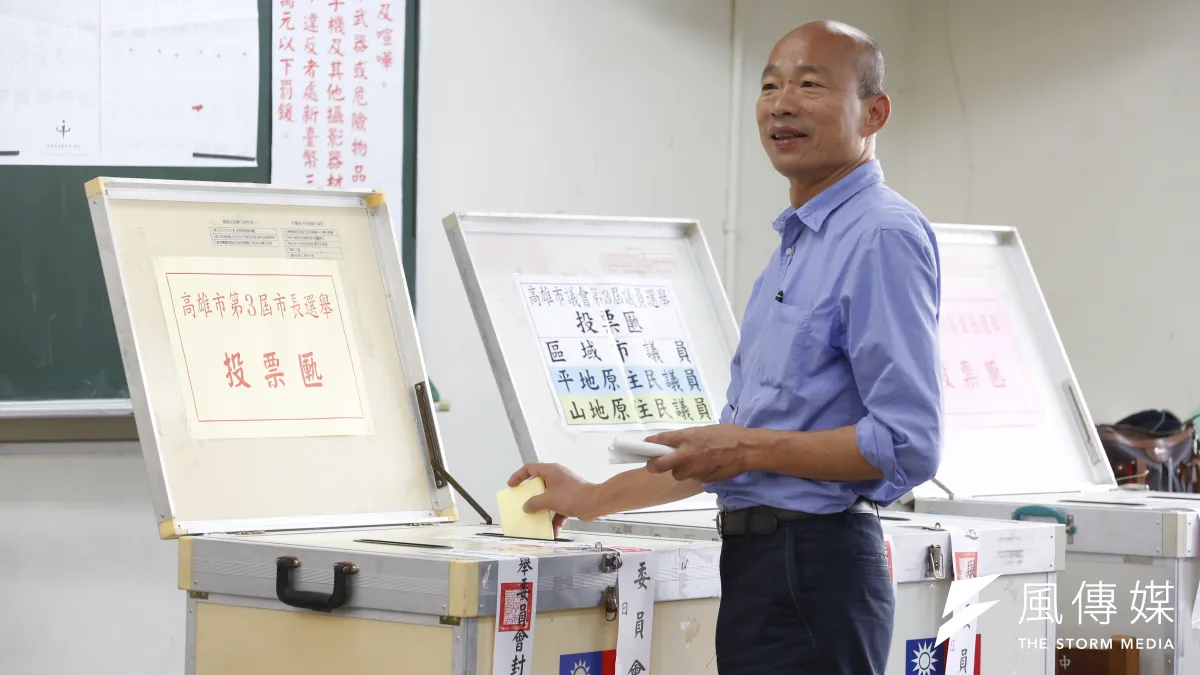 及喧嘩。
武器或危險物品
手機及其他攝影器材
違反者處新臺幣三
萬元以下罰鍰。
高雄市第3屆市長選舉
投票匭
高雄市議會第3屆議員選舉
投票匭
區域市議員
平地原主民議員
山地原主民議員
投票匭
舉委員會封
委員會
風傳媒
THE STORM MEDIA